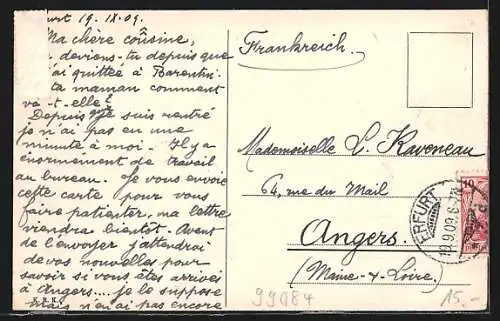 urt 19. IX. 09.
Ma chère cousine,
deviens-tu depuis que
ai quittée à Barentin.
ta maman comment
va-t-elle?
Depuis que je suis rentré
je n'ai pas eu une
minute à moi. Il y a
énormement de travail
au bureau. Je vous envoie
cette carte pour vous
faire patienter, ma lettre
viendra bientôt. Avant
de l'envoyer j'attendrai
de vos nouvelles pour
savoir si vous êtes arrivés
à Angers.... je le suppose
mais n'en ai pas encore
Frankreich.
Mademoiselle L. Raveneau
64, rue du Mail
Angers.
(Maine-&-Loire.)
ERFURT
19.9.09.6-7N
10
99184
15.-